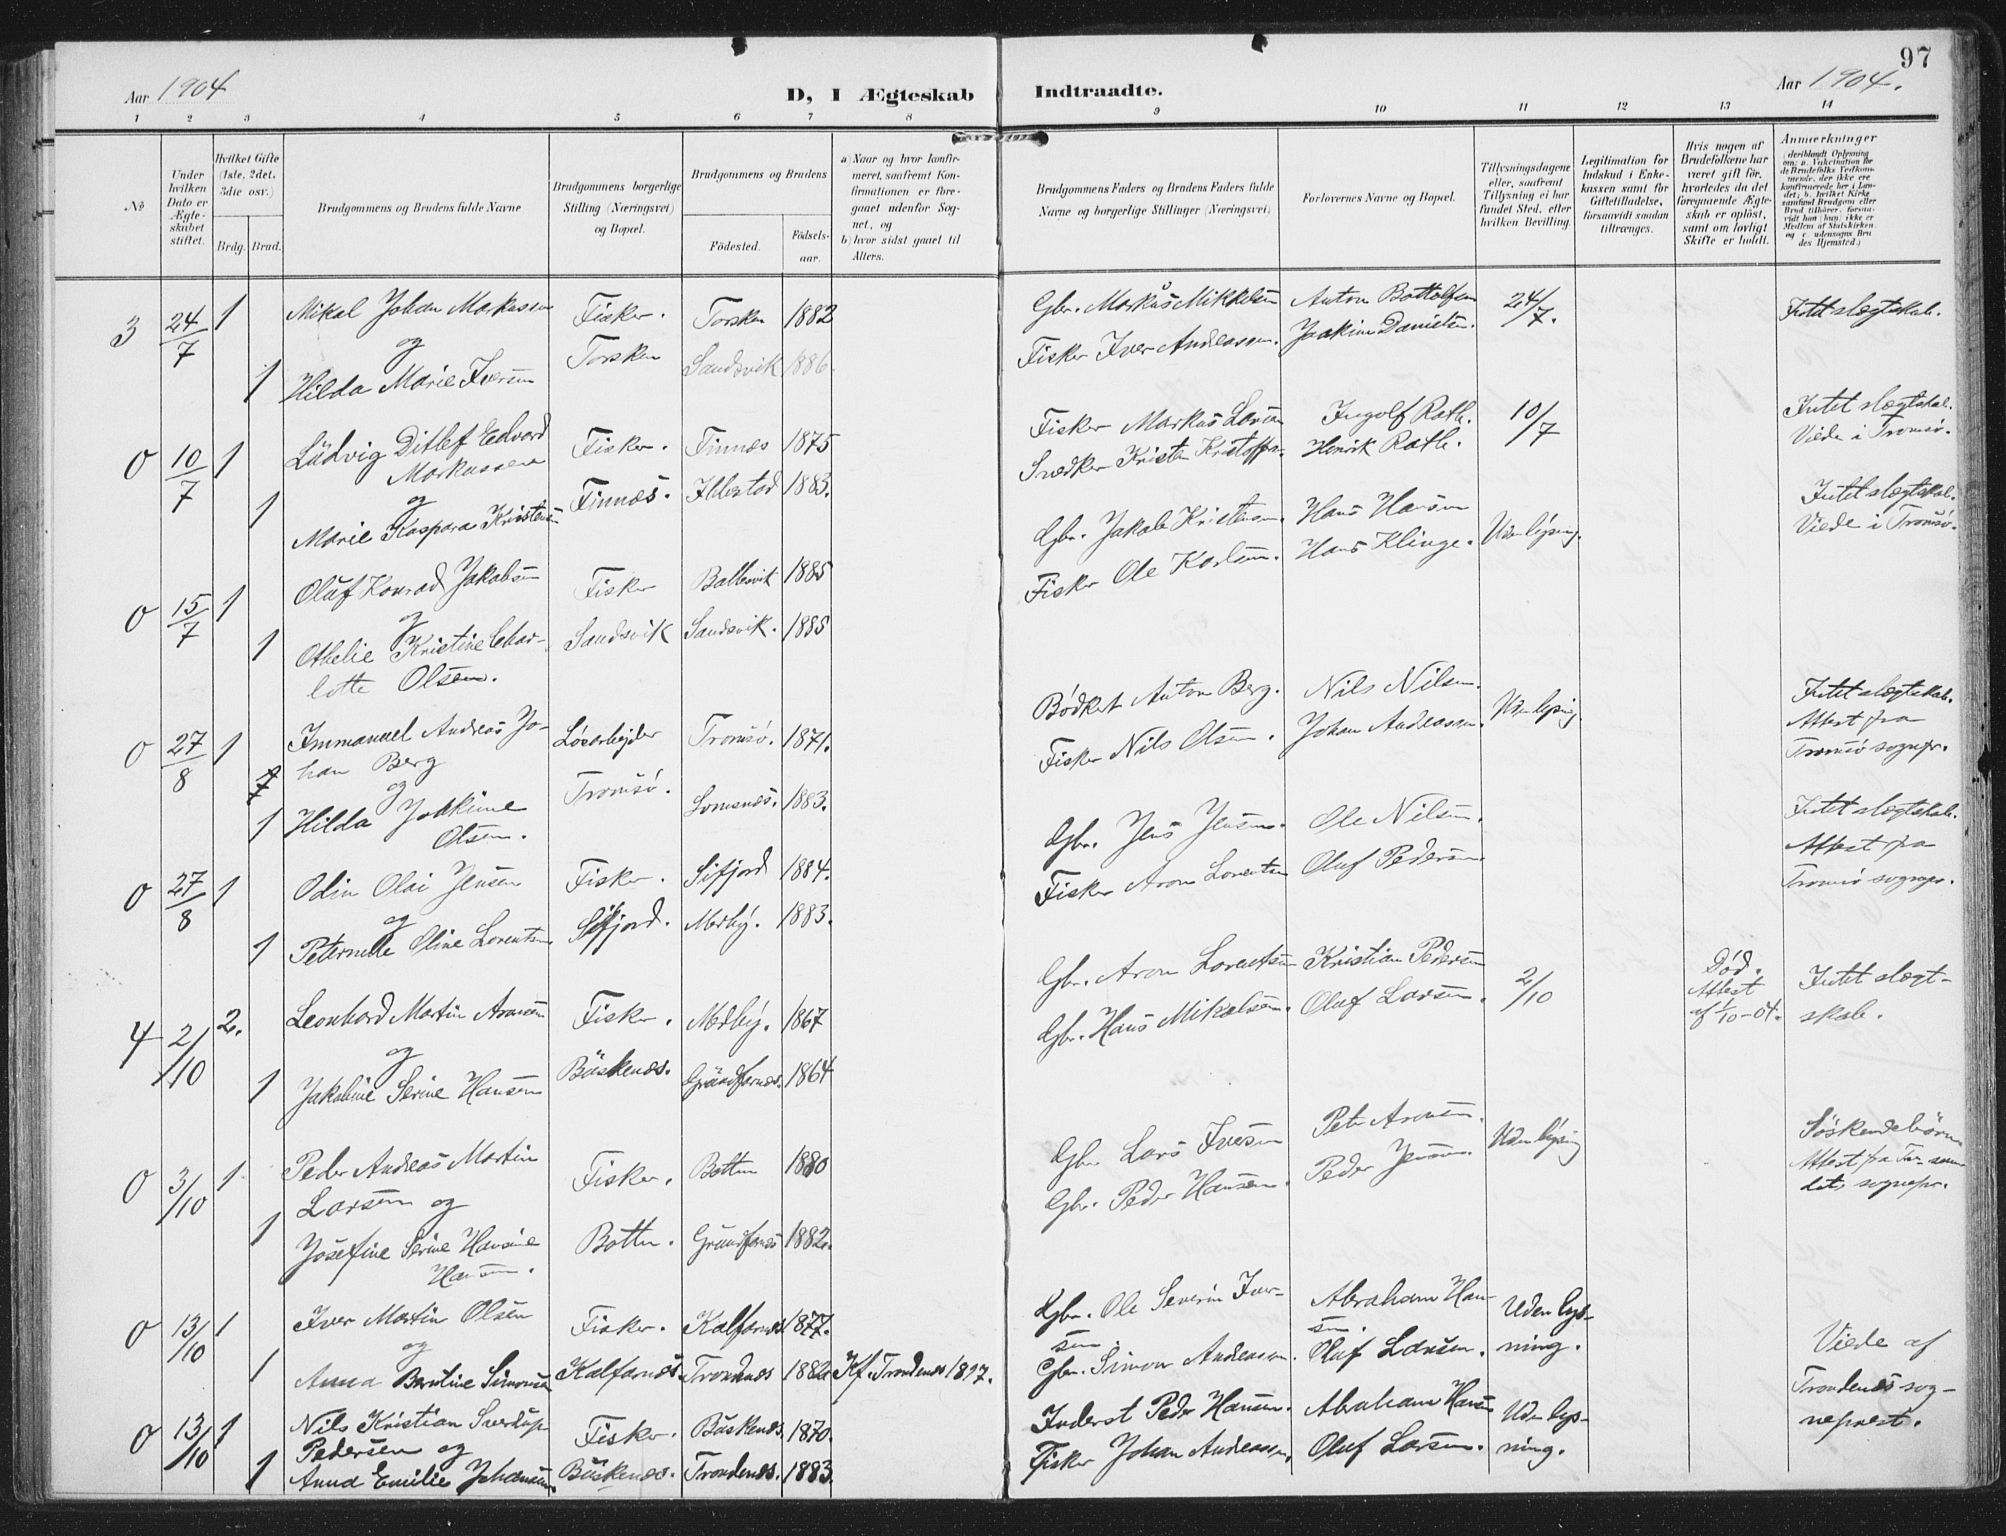 97
Aar 1904
D, I Ægteskab
Indtraadte.
Aar 1904.
1 2 3 4 5 6 7 8 9 10 11 12 13 14
No
Under hvilken Dato er Ægteskabet stiftet.
Hvilket Gifte (1ste, 2det, 3die osv.)
Brdg. Brud.
Brudgommens og Brudens fulde Navne
Brudgommens borgerlige Stilling (Næringsvei) og Bopæl.
Brudgommens og Brudens
Födested.
Födsels-aar.
a) Naar og hvor konfirmeret, saafremt Konfirmationen er foregaaet udenfor Sognet, og
b) hvor sidst gaaet til Alters.
Brudgommens Faders og Brudens Faders fulde Navne og borgerlige Stillinger (Næringsvei)
Forlovernes Navne og Bopæl.
Tillysningsdagene eller, saafremt Tillysning ei har fundet Sted, efter hvilken Bevilling.
Legitimation for Indskud i Enkekassen samt for Giftetilladelse, forsaavidt saadan tiltrænges.
Hvis nogen af Brudefolkene har været gift før, hvorledes da det foregaaende Ægteskab er opløst, samt om lovligt Skifte er holdt.
Anmerkninger
3 24/7 1 Mikal Johan Markussen Fisker. Torsken 1882 Gbr. Markus Mikkelsen Anton Bottolfsen 24/7. Intet slægtskab.
og
1 Hilda Marie Iversen Torsken Sandsvik 1886. Fisker Iver Andreassen. Joakim Danielsen.
0 10/7 1 Ludvig Ditlef Edvard Fisker. Finnæs 1875 Fisker Markus Larsen Ingolf Rath. 10/7 Intet slægtskab.
Markussen
og
1 Marie Kaspara Kristensen Finnæs. Ibbestad 1883. Snedker Kristen Kristoffersen. Henrik Rath. Viede i Tromsø.
0 15/7 1 Oluf Konrad Jakobsen Fisker Ballesvik 1885 Gbr. Jakob Kristensen. Hans Hansen Uden lysing. Intet slægtskab.
og
1 Othelie Kristine Char- Sandsvik Sandsvik. 1885 Fisker Ole Karlsen. Hans Klinge. Viede i Tromsø.
lotte Olsen.
0 27/8 1 Immanuel Andreas Jo- Løsarbejder Tromsø. 1871. Bødker Anton Berg. Nils Nilsen. Uden lysing. Intet slægtskab.
han Berg Attest fra
og
1 Hilda Joakime Tromsø. 1883. Fisker Nils Olsen. Johan Andreassen. Tromsø sognepr.
Olsen.
0 27/8 1 Odin Olai Jensen Fisker. Sifjord 1884. Gbr. Jens Jensen. Ole Nilsen. Intet slægtskab.
og Attest fra
1 Peternelle Oline Lorentsen Sifjord. Medby. 1883. Fisker Aron Lorentsen Oluf Pedersen Tromsø sognepr.
4 2/10 2. Leonhard Martin Aronsen Fisker. Medby. 1867 Gbr. Aron Lorentsen Kristian Pedersen 2/10 Død. Attest af 1/10-04. Intet slægt-
og
1 Jakobine Serine Hansen Buskenæs. Grundfarnæs. 1864 Gbr. Hans Mikalsen. Oluf Larsen. skab.
0 3/10 1 Peder Andreas Martin Fisker. Botten 1880 Gbr. Lars Iversen Peter Aronsen. Uden lysing Søskendebörn
Larsen og
1 Josefine Serine Hansine Botten. Grundfarnæs 1882. Gbr. Peder Hansen. Peder Jensen. sognepr.
Hansen.
0 13/10 1 Iver Martin Olsen Fisker. Kalfarnæs 1877. Gbr. Ole Severin Iver- Abraham Han- Uden lys-
og sen sen.
1 Anna Berntine Simonsen Kalfarnæs. Trondenæs 1882 Kf. Trondenæs 1897. Gbr. Simon Andreassen. Oluf Larsen. ning. Viede af
0 13/10 1 Nils Kristian Sverdrup Fisker. Buskenæs. 1870. Inderst Peder Hansen. Abraham Hansen Uden lys- Trondenæs sog-
Pedersen og
1 Anna Emilie Johansen Buskenæs. Trondenæs. 1883. Fisker Johan Andreassen. Oluf Larsen. ning. neprest.